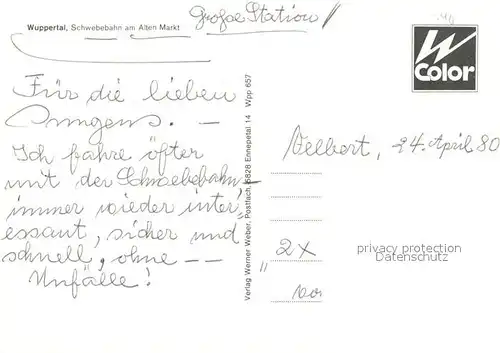 Große Station
Wuppertal, Schwebebahn am Alten Markt
W
Color
Für die lieben
Jungens. –
Ich fahre öfter
mit der Schwebebahn,
immer wieder inter-
essant, sicher und
schnell, ohne – –
Unfälle!
Verlag Werner Weber, Postfach, 5828 Ennepetal 14 Wpp 657
Velbert, 24. April 80
2x
privacy protection
Datenschutz